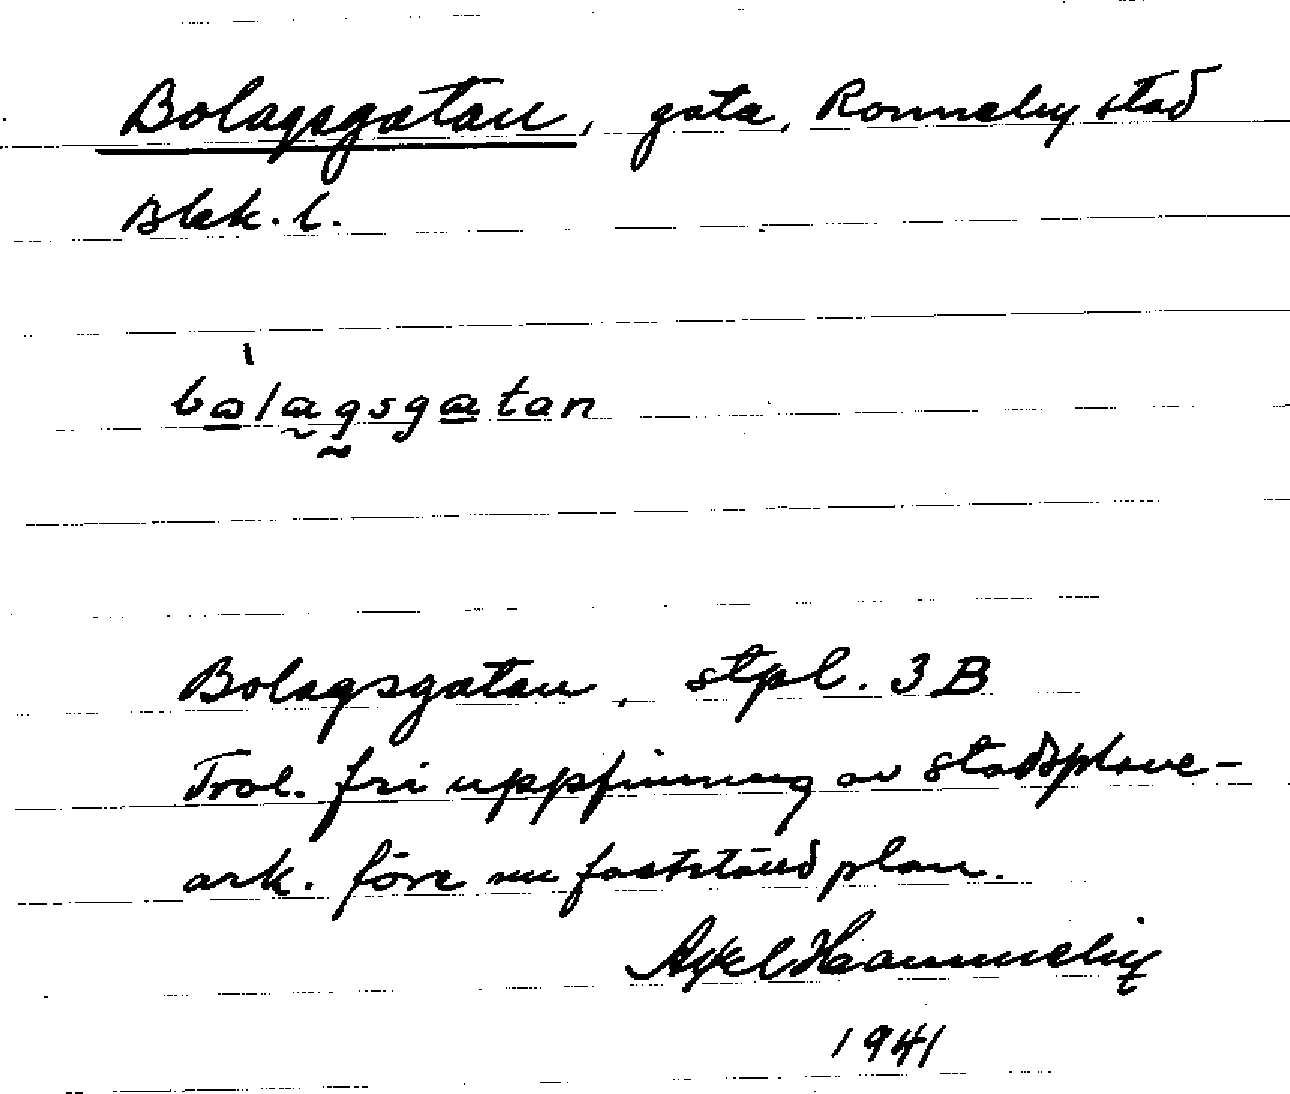 Bolagsgatan, gata, Ronneby stad
Blek. l.
bolagsgatan
Bolagsgatan, stpl. 3B
Trol. fri uppfinning av stadsplane-
ark. före nu fastställd plan.
Axel
1941